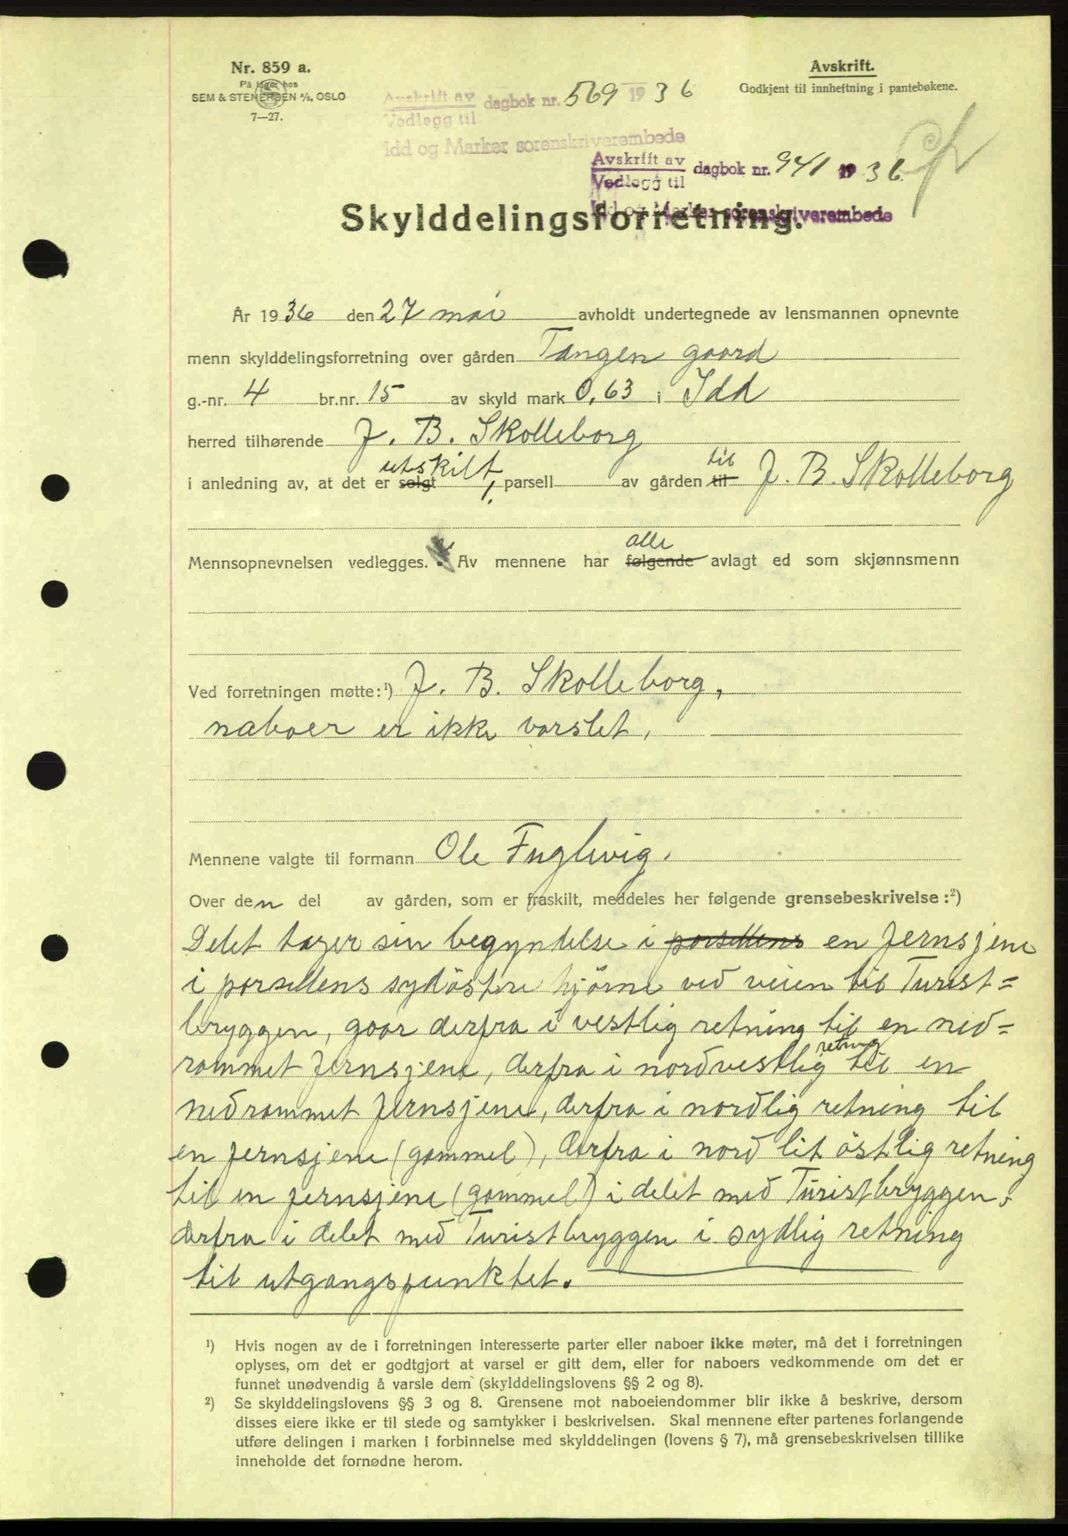 Nr. 859 a.
På lager hos
SEM & STENERSEN A/S, OSLO
7—27.
Avskrift.
Godkjent til innheftning i pantebøkene.
Avskrift av
Vedlegg til
dagbok nr. 569 1936
Idd og Marker sorenskriverembede
Avskrift av
Vedlegg til
dagbok nr. 941 1936.
Idd og Marker sorenskriverembede
Skylddelingsforretning.
År 1936 den 27 mai avholdt undertegnede av lensmannen opnevnte
menn skylddelingsforretning over gården Tangen gaard
g.-nr. 4 br.nr. 15 av skyld mark 0,63 i Idd
herred tilhørende J. B. Skolleborg
i anledning av, at det er solgt utskilt 1, parsell av gården til til J. B. Skolleborg
Mennsopnevnelsen vedlegges. Av mennene har følgende alle avlagt ed som skjønnsmenn
Ved forretningen møtte:¹) J. B. Skolleborg,
naboer er ikke varslet.
Mennene valgte til formann Ole Fuglevig.
Over den del av gården, som er fraskilt, meddeles her følgende grensebeskrivelse:²)
Delet tager sin begyndelse i parsellens en Jernsjene
i parsellens sydöstre hjörne ved veien til Turist=
bryggen, gaar derfra i vestlig retning til en ned=
rammet Jernsjene, derfra i nordvestlig retning til en
nedrammet Jernsjene, derfra i nordlig retning til
en Jernsjene (gammel), derfra i nord lit östlig retning
til en jernsjene (gammel) i delet med Turistbryggen,
derfra i delet med Turistbryggen i sydlig retning
til utgangspunktet.
¹) Hvis nogen av de i forretningen interesserte parter eller naboer ikke møter, må det i forretningen
oplyses, om det er godtgjort at varsel er gitt dem, eller for naboers vedkommende om det er
funnet unødvendig å varsle dem (skylddelingslovens §§ 2 og 8).
²) Se skylddelingslovens §§ 3 og 8. Grensene mot naboeiendommer blir ikke å beskrive, dersom
disses eiere ikke er til stede og samtykker i beskrivelsen. Skal mennene efter partenes forlangende
utføre delingen i marken i forbinnelse med skylddelingen (lovens § 7), må grensebeskrivelsen tillike
inneholde det fornødne herom.